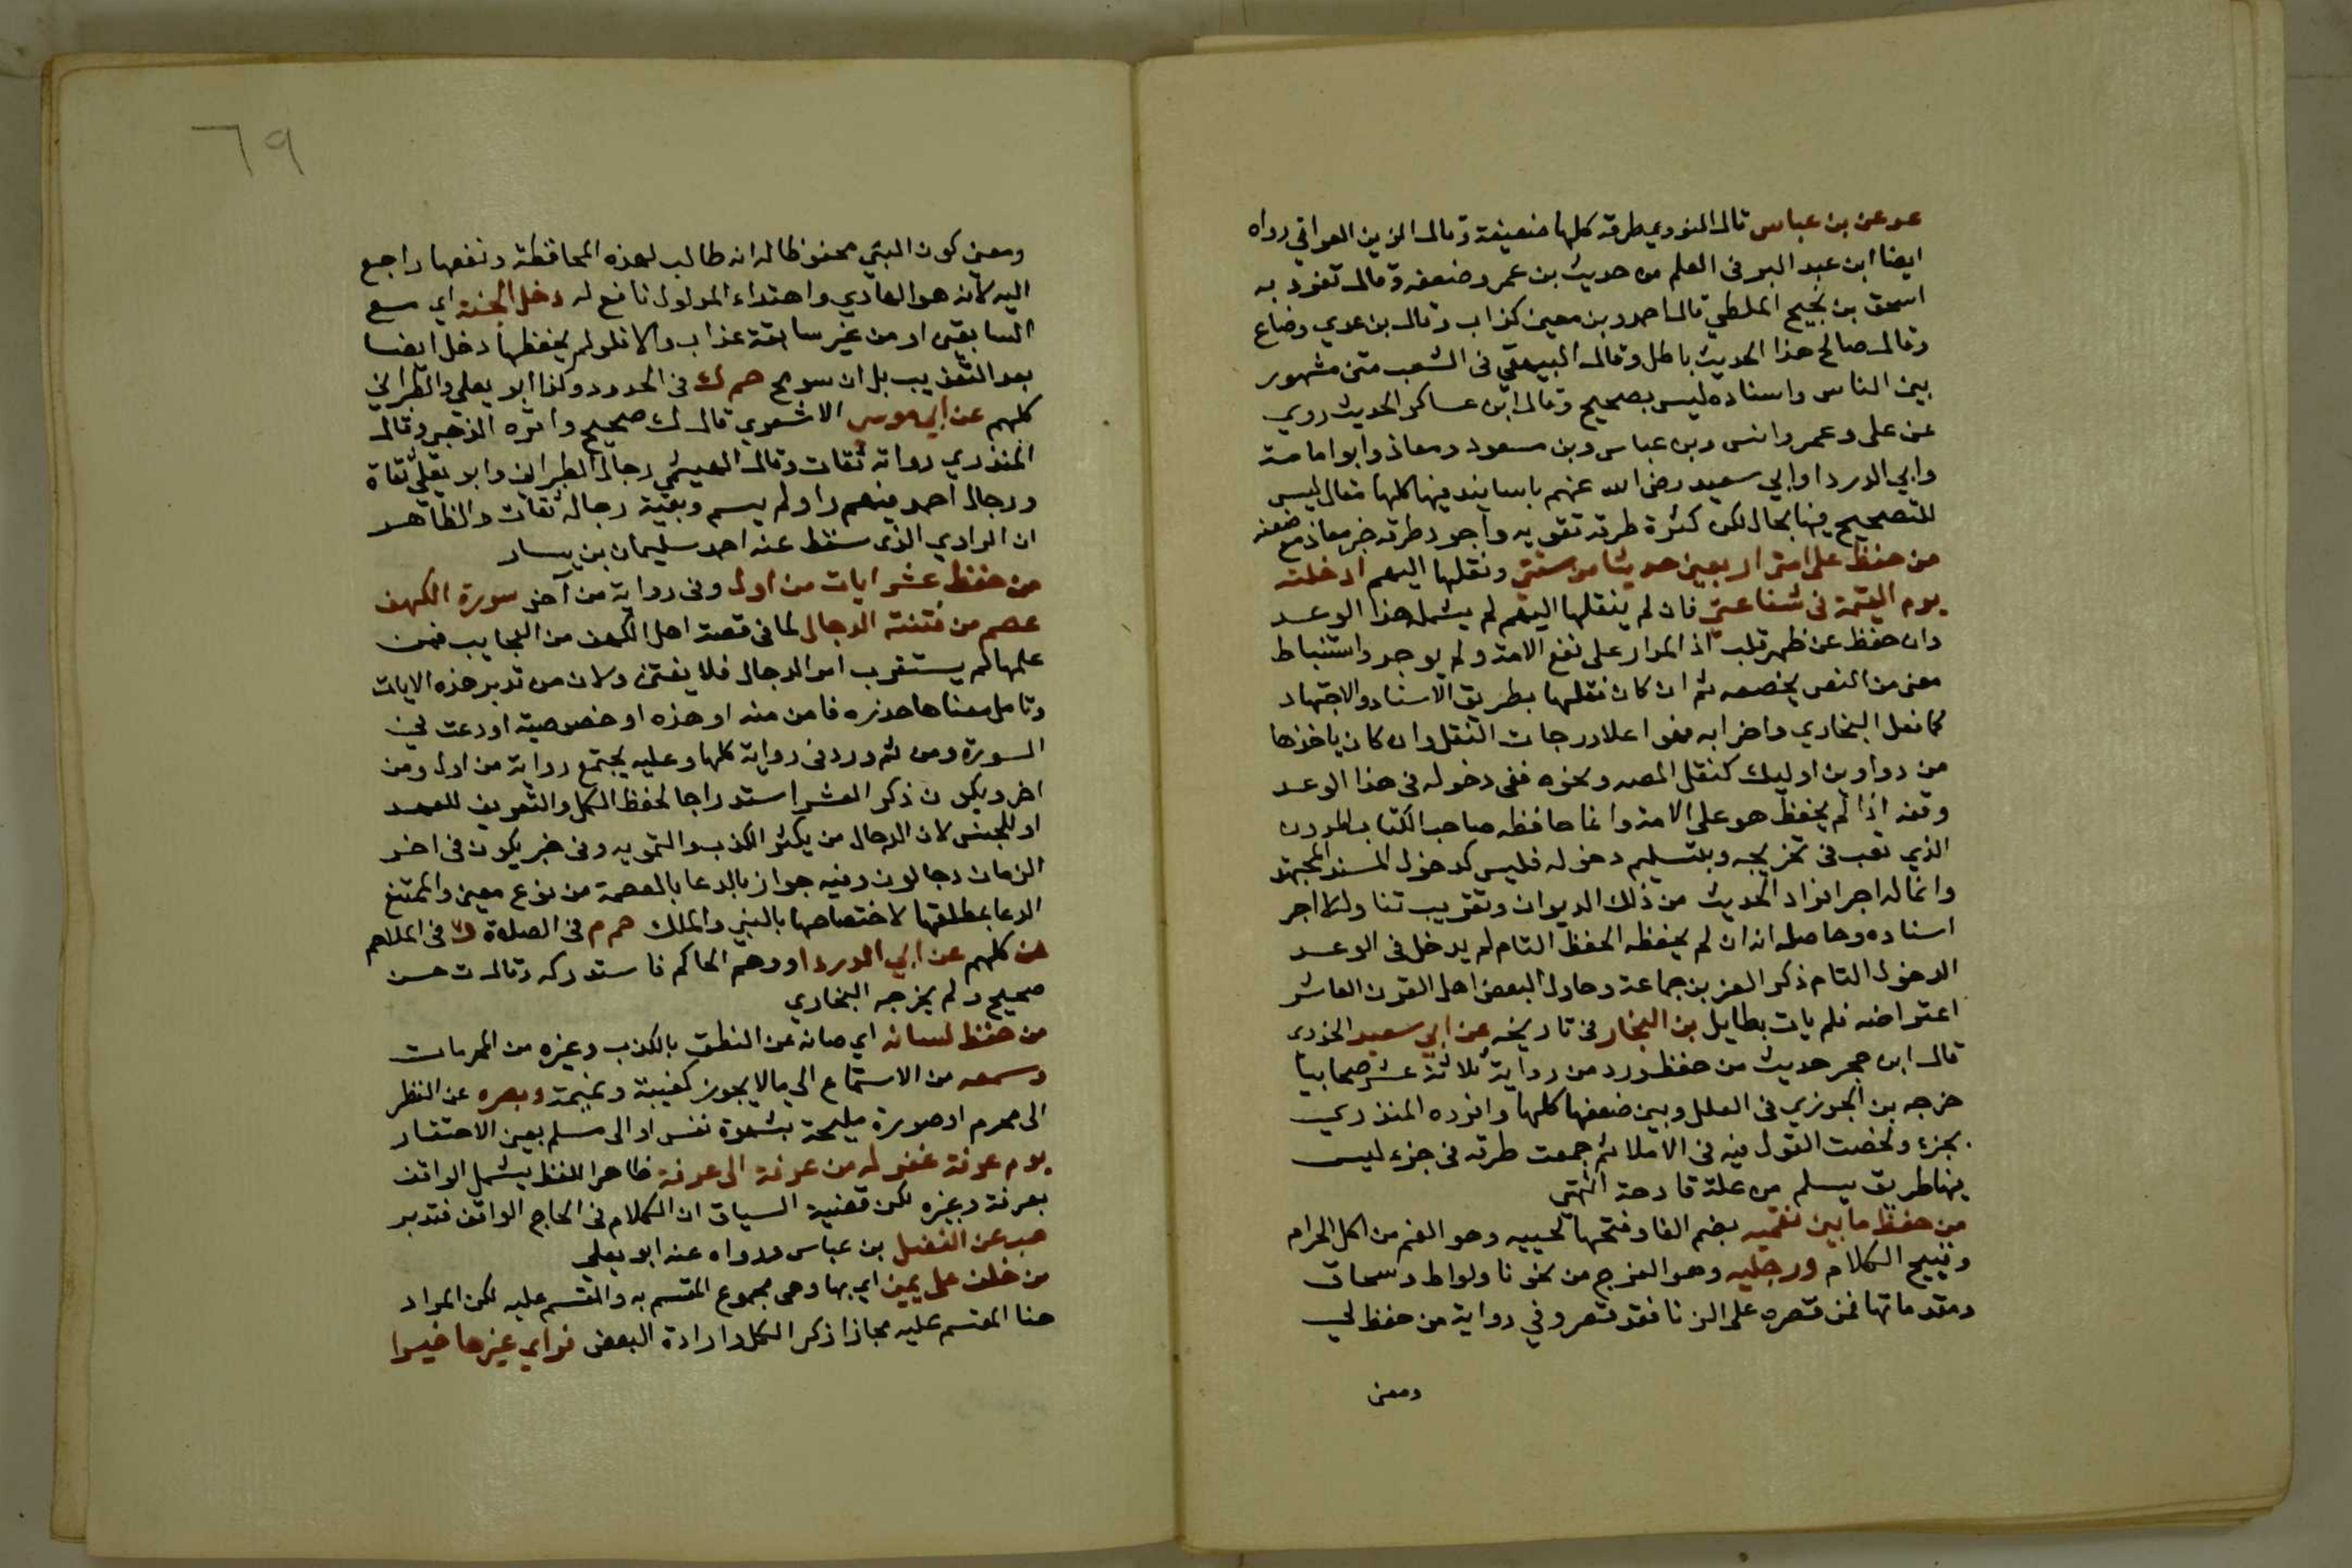 عد عن بن عباس قال النووي طرقه كلها ضعيفة وقال الزين العراقي رواه
ايضا ابن عبد البر في العلم من حديث بن عمر وضعفه وقال تفرد به
اسحق بن نجيح الملطي قال احمد وبن معين كذاب وقال بن عدي وضاع
وقال صالح هذا الحديث باطل وقال البيهقي في الشعب متن مشهور
بين الناس واسناده ليس بصحيح وقال ابن عساكر الحديث روي
عن علي وعمر وانس وبن عباس وبن مسعود ومعاذ وابو امامة
وابي الدردا وابي سعيد رضى الله عنهم باسانيد فيها كلها مقال ليس
للتصحيح فيها مجال لكن كثرة طرقه تقويه واجود طرقه خبر معاذ مع ضعفه
من حفظ على امتي اربعين حديثا من سنتي ونقلها اليهم ادخلته
يوم القيمة في شفاعتي فان لم ينقلها اليهم لم يشمله هذا الوعد
وان حفظ عن ظهر قلب اذ المدار على نفع الامة ولم يوجد واستنباط
معنى من النص يخصصه ثم ان كان نقلها بطريق الاسناد والاجتهاد
كما فعل البخاري واضرابه فهو اعلا درجات النقل وان كان ياخذها
من دواوين اوليك كنقل المص ونحوه ففي دخوله في هذا الوعد
وقفة اذا لم يحفظ هو على الامة وانما حافظه صاحب الكتاب المدون
الذي تعب في تخريجه وبتسليم دخوله فليس كدخول المسند المجتهد
وانما له اجر افراد الحديث من ذلك الديوان وتقريب تناوله لا اجر
اسناده وحاصله انه ان لم يحفظه الحفظ التام لم يدخل في الوعد
الدخول التام ذكر العز بن جماعة وحاول البعض اهل القرن العاشر
اعتراضه فلم يات بطايل بن النجار في تاريخه عن ابي سعيد الخدري
قال ابن حجر حديث من حفظ ورد من رواية ثلاثة عشر صحابيا
خرجه بن الجوزي في العلل وبين ضعفها كلها وافرده المنذري
بجزء ولخصت القول فيه في الاملا ثم جمعت طرقه في جزء ليس
فيها طريق يسلم من علة قادحة انتهى
من حفظ ما بين فقميه بضم الفا وفتحها لحييه وهو الفم من اكل الحرام
وقبيح الكلام ورجليه وهو الفرج من نحو زنا ولواط وسحاق
ومقدماتها فمن قصره على الزنا فقد قصر وفي رواية من حفظ لي
ومعنى
٦٩
ومعنى كون النبي محفوظا له انه طالب لهذه المحافظة ونفعها راجع
اليه لانه هو الهادي واهتداء المدلول نافع له دخل الجنة اي مع
السابقين او من غير سابقة عذاب والا فلو لم يحفظها دخل ايضا
بعد التعذيب بل ان سومح حم ك في الحدود وكذا ابو يعلي والطبراني
كلهم عن ابي موسى الاشعري قال ك صحيح واقره الذهبي وقال
المنذري رواته ثقات وقال الهيثمي رجال الطبراني وابو يعلى ثقاة
ورجال احمد فيهم راو لم يسم وبقية رجاله ثقات والظاهر
ان الراوي الذي سقط عند احمد سليمان بن يسار
من حفظ عشر ايات من اول وفى رواية من آخر سورة الكهف
عصم من فتنة الدجال لما في قصة اهل الكهف من العجايب فمن
علمها لم يستغرب امر الدجال فلا يفتتن ولان من تدبر هذه الايات
وتامل معناها حذره فامن منه او هذه او خصوصية اودعت في
السورة ومن ثم ورد في رواية كلها وعليه يجتمع رواية من اول ومن
اخر ويكون ذكر العشر استدراجا لحفظ الكل والتعريف للعهد
او للجنس لان الدجال من يكثر الكذب والتمويه وفي خبر يكون في اخر
الزمان دجالون وفيه جواز بالدعا بالعصمة من نوع معين والممتنع
الدعا بمطلقها لاختصاصها بالنبي والملك حم م في الصلاة د في الملاحم
ن كلهم عن ابي الدردا ووهم الحاكم فاستدركه وقال ت حسن
صحيح ولم يخرجه البخاري
من حفظ لسانه اي صانه عن النطق بالكذب وغيره من المحرمات
وسمعه من الاستماع الى ما لا يجوز كغيبة ونميمة وبصره عن النظر
الى محرم او صورة مليحة بشهوة نفس او الى مسلم بعين الاحتقار
يوم عرفة غفر له من عرفة الى عرفة ظاهر اللفظ يشمل الواقف
بعرفة وغيره لكن قضية السياق ان الكلام في الحاج الواقف فتدبر
هب عن الفضل بن عباس ورواه عنه ابو يعلي
من حلف على يمين اي بها وهى مجموع المقسم به والمقسم عليه لكن المراد
هنا المقسم عليه مجازا ذكر الكل وارادة البعض فراى غيرها خيرا